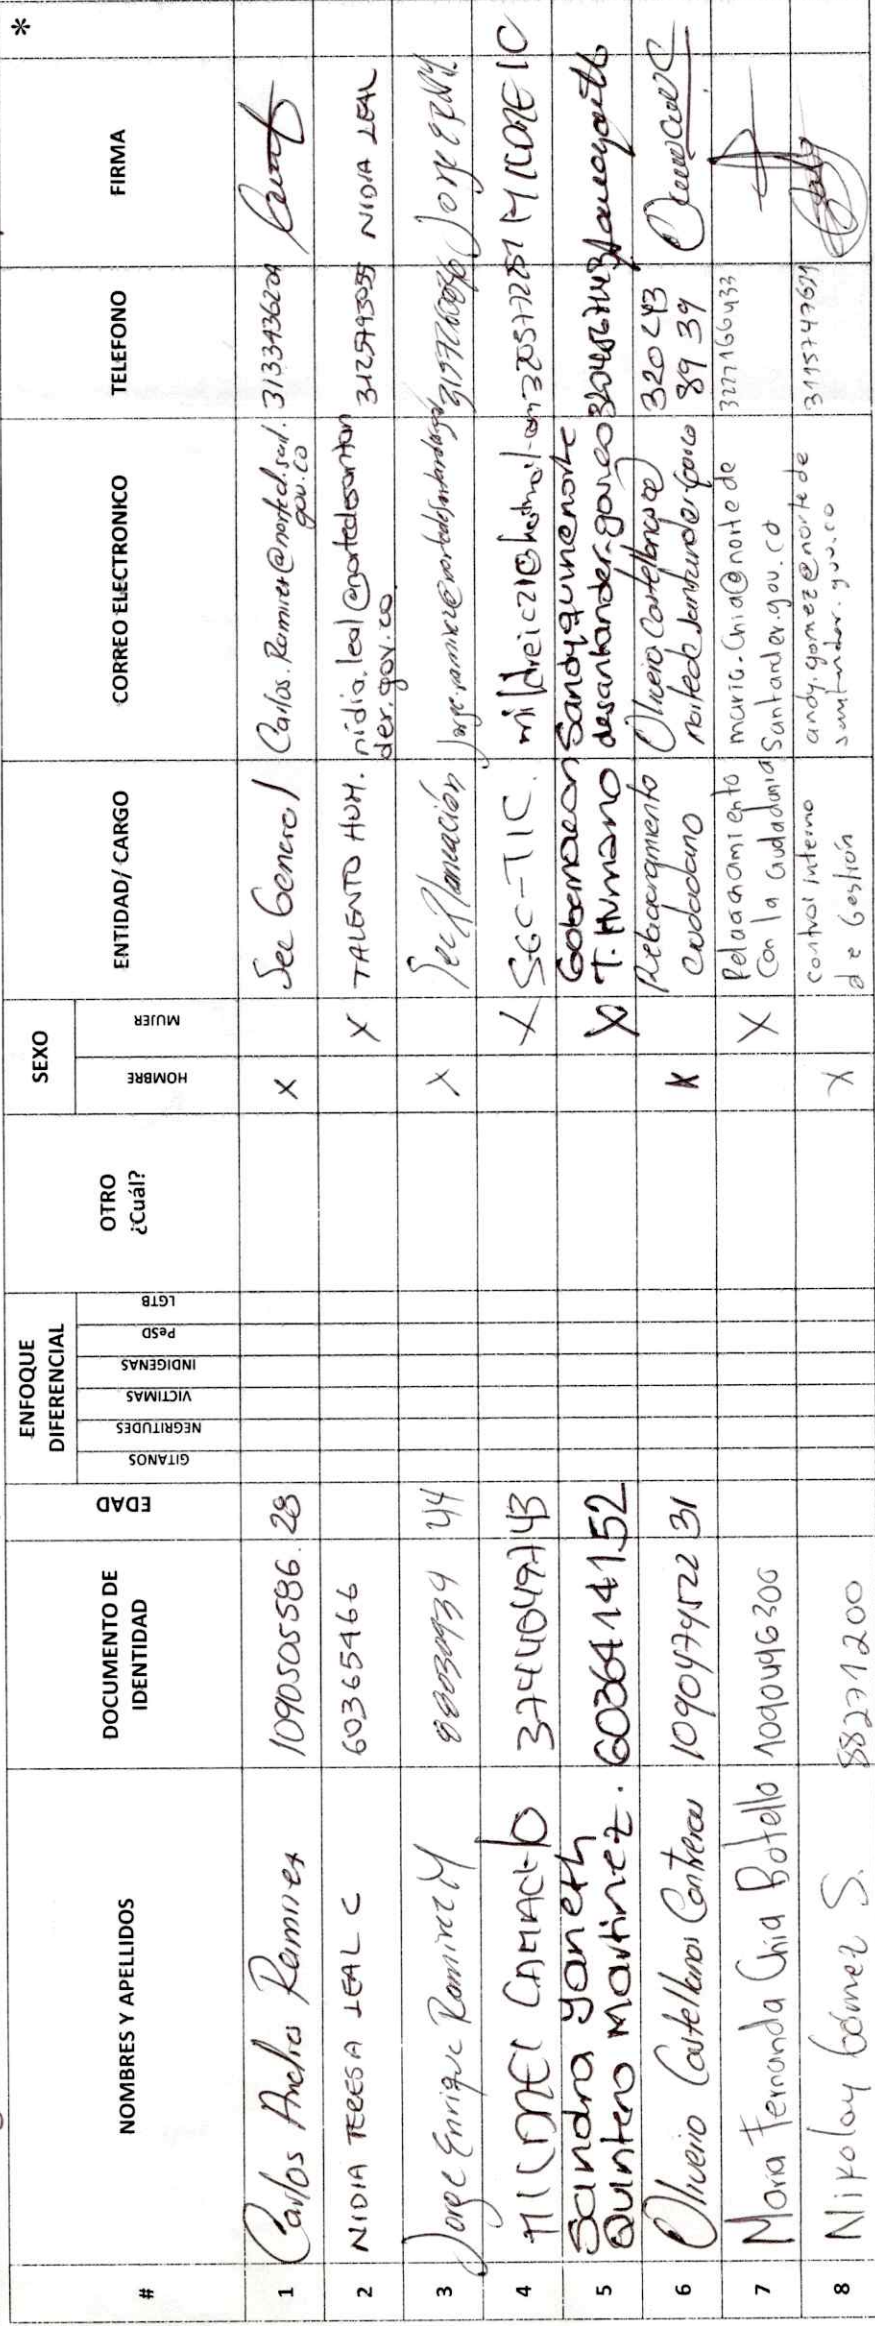 # NOMBRES Y APELLIDOS DOCUMENTO DE IDENTIDAD EDAD ENFOQUE DIFERENCIAL GITANOS NEGRITUDES VICTIMAS INDIGENAS PeSD LGTB OTRO ¿Cuál? SEXO HOMBRE MUJER ENTIDAD/ CARGO CORREO ELECTRONICO TELEFONO FIRMA *
1 Carlos Andres Ramirez 1090505586 28 X Sec General Carlos.Ramirez@norted.sant.
gov.co 3133436204
2 NIDIA TERESA LEAL C 60365466 X TALENTO HUM. nidia.leal@nortedesantan
der.gov.co 3125793055 NIDIA LEAL
3 Jorge Enrique Ramirez M 44 X Sec Planeación
4 CAMACHO 43 X SGC-TIC.
5 Sandra Yaneth
Quintero Martinez. 60364141 52 X Gobernacion
T. Humano Sandyquinenorte
desantander.gov.co
6 Oliverio Castellanos Contreras 1090474522 31 X Relacionamiento
Ciudadano Oliverio Castellanos@
nortedesantander.gov.co 320 243
89 39
7 Maria Fernanda Chia Botello 1090496306 X Relacionamiento
Con la Ciudadania maria.chia@nortede
Santander.gov.co 3227166433
8 Nikolay Gómez S. 88271200 X control interno
de Gestión andy.gomez@nortede
santander.gov.co